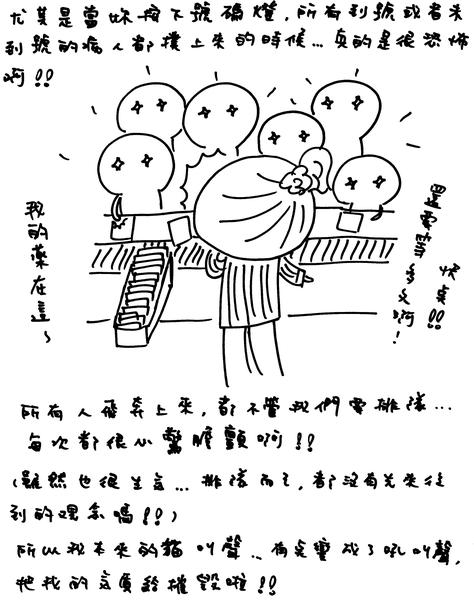 尤其是當妳按下號碼燈,所有到號或者未
到號的病人都撲上來的時候...真的是很恐怖
啊!!
我的藥在這~
還要等多久啊!
快点!!
所有人飛奔上來,都不管我們要排隊...
每次都很心驚膽顫啊!!
(雖然也很生氣...排隊而已,都沒有先來後
到的理念嗎!!)
所以我本來的貓叫聲...有点變成了吼叫聲,
把我的氣質給摧毀啦!!